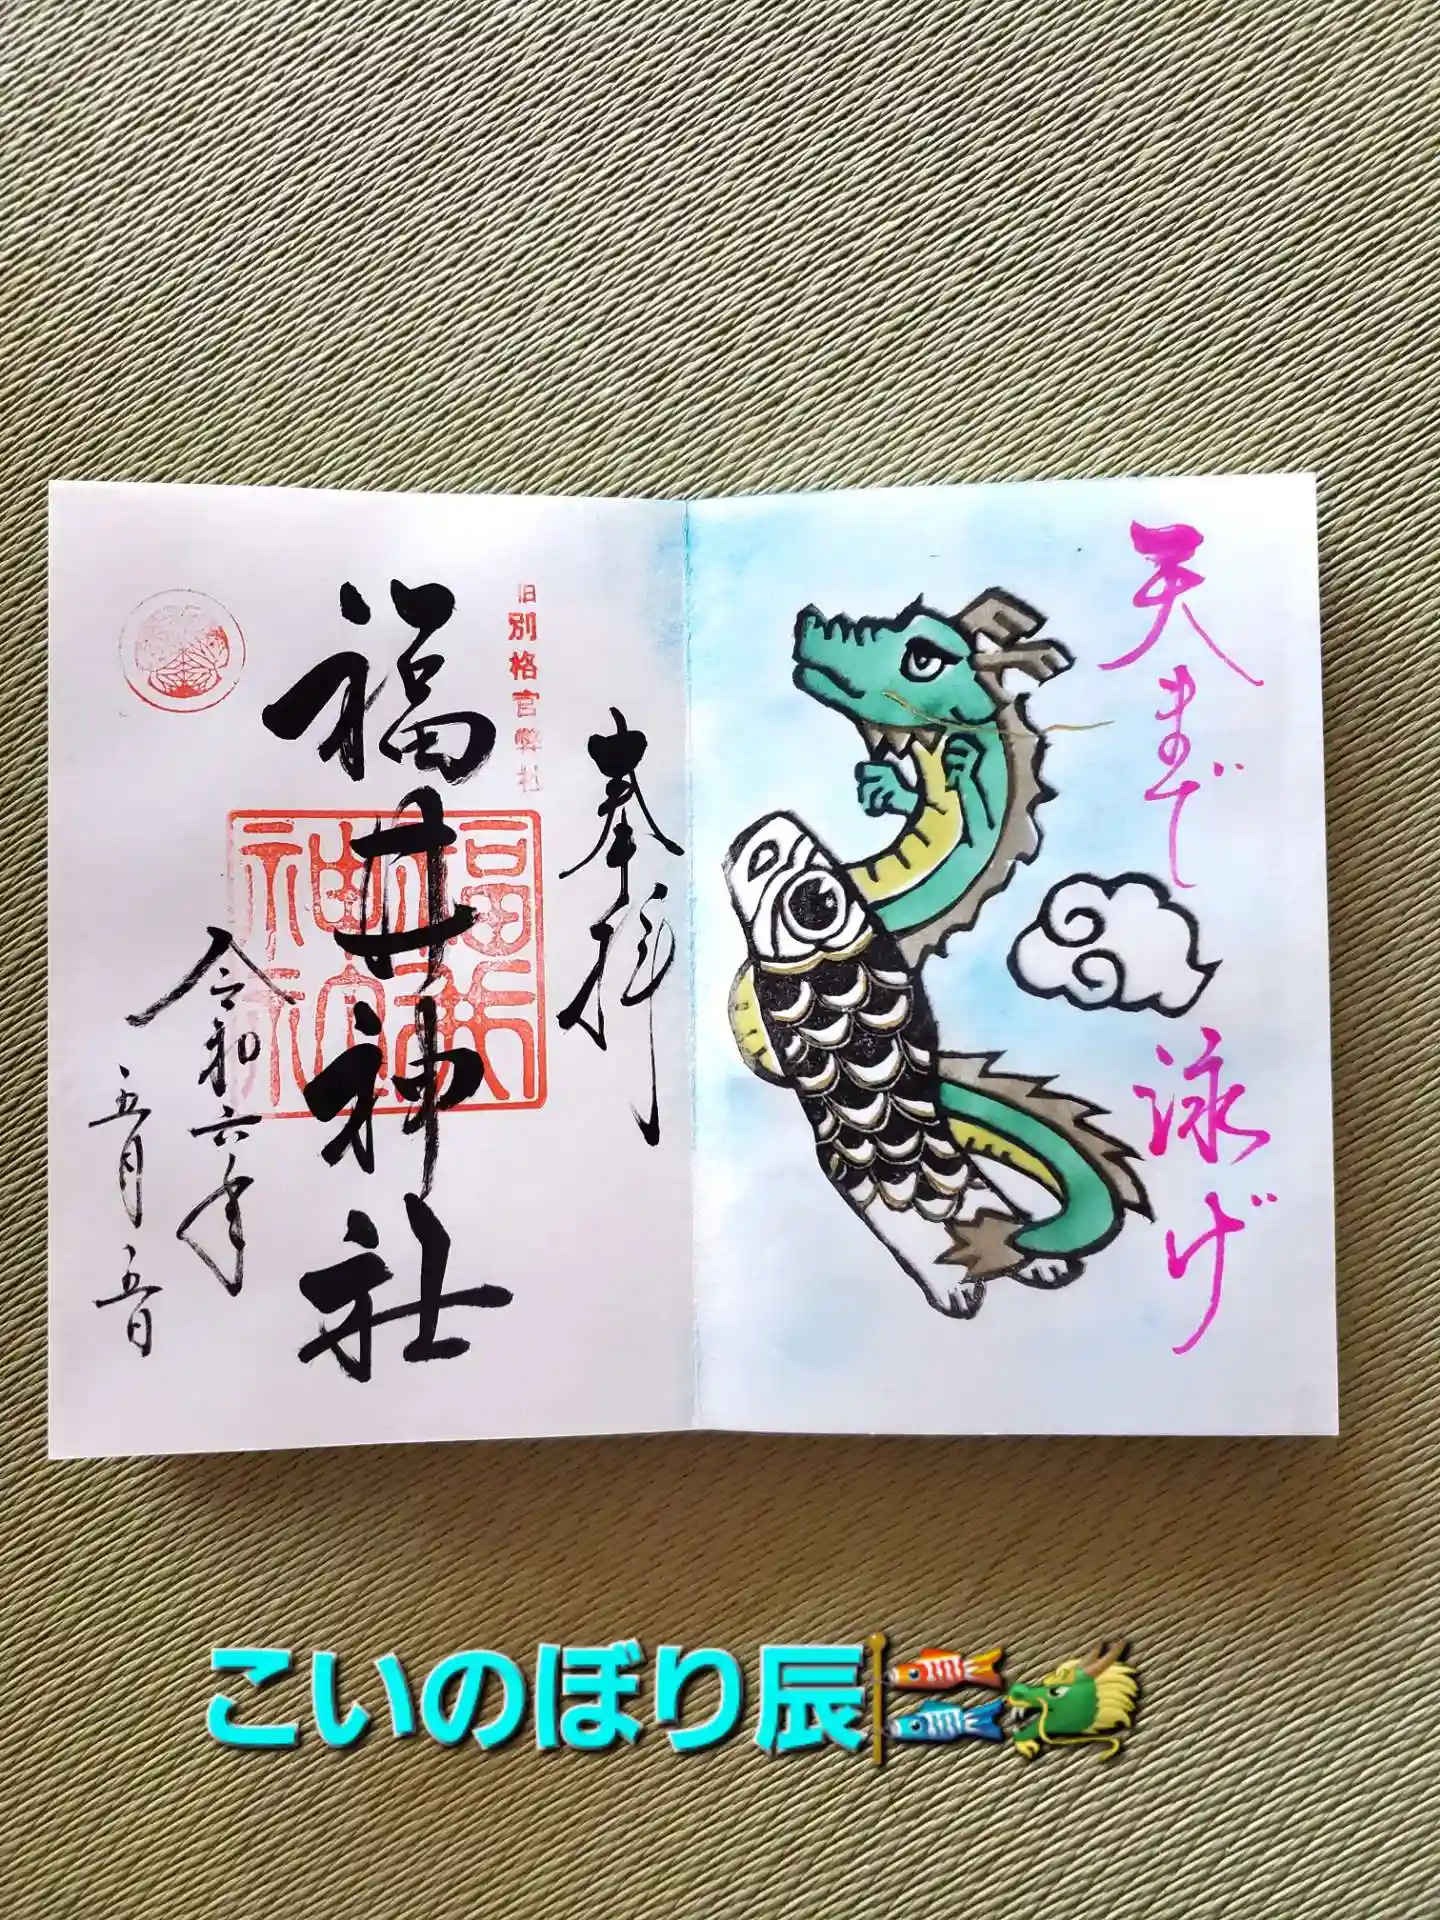 天まで
泳げ
奉拝
旧別格官幣社
福井神社
令和六年
五月五日
こいのぼり辰🎏🐲